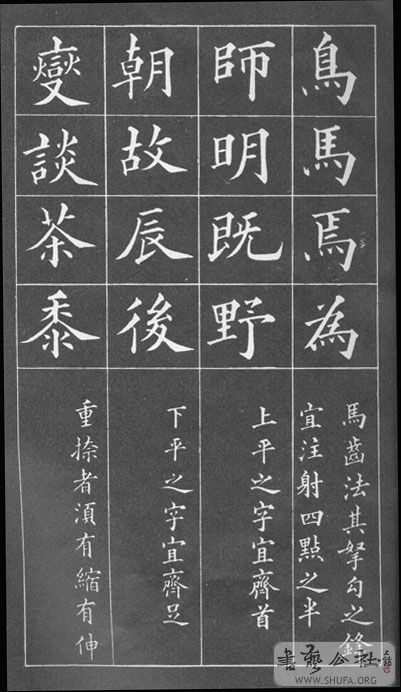 鳥馬焉為
馬齒法其拏勾之鋒
宜注射四點之半
師明既野
上平之字宜齊首
朝故辰後
下平之字宜齊足
燮談茶黍
重捺者須有縮有伸
書藝公社
WWW.SHUFA.ORG